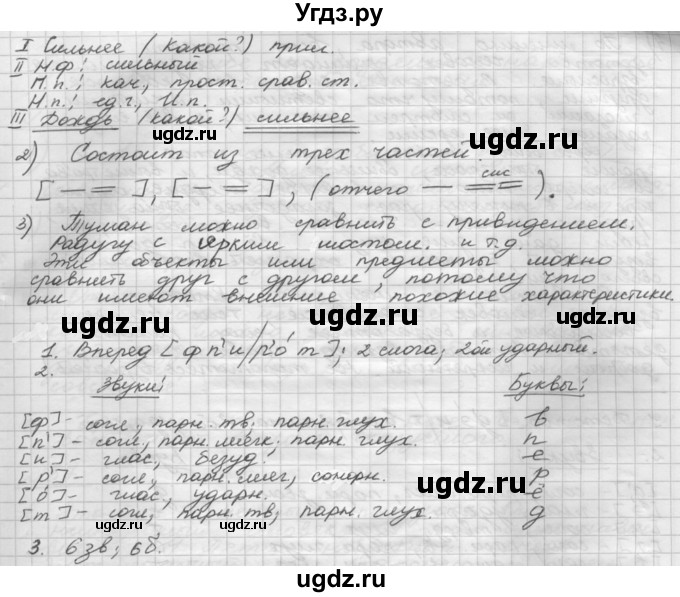 Угдз.ру
I Сильнее (Какой?) прил.
II Н.ф: сильный
П.п.: кач., прост. срав. ст.
Н.п.: ед.ч., И.п.
III Дождь (какой?) сильнее
ugdz.ru ugdz.ru
2) Состоит из трех частей.
сис
[ — = ], [ — = ], (отчего — == ).
3) Туман можно сравнить с привидением.
Радугу с ярким мостом. и т.д.
Эти объекты или предметы можно
сравнить друг с другом, потому что
они имеют внешние похожие характеристики.
ugdz.ru ugdz.ru
1. Вперед [ф п' и/р' о́ т]; 2 слога; 2ой ударный.
2.
Звуки: Буквы:
ugdz.ru
[ф] - согл., парн. тв; парн. глух. в
[п'] - согл., парн. мягк; парн. глух. п
[и] - глас., безуд. е
[р'] - согл., парн. мяг., сонорн. р
[о́] - глас., ударн. ё
[т] - согл., парн. тв; парн. глух. д
ugdz.ru ugdz.ru
3. 6 зв; 6 б.
ugdz.ru